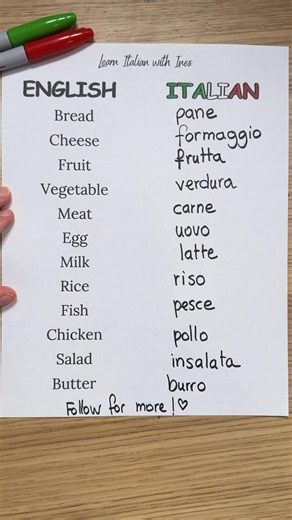 Learn Italian with Ines
ENGLISH ITALIAN
Bread pane
Cheese formaggio
Fruit frutta
Vegetable verdura
Meat carne
Egg uovo
Milk latte
Rice riso
Fish pesce
Chicken pollo
Salad insalata
Butter burro
Follow for more!♡